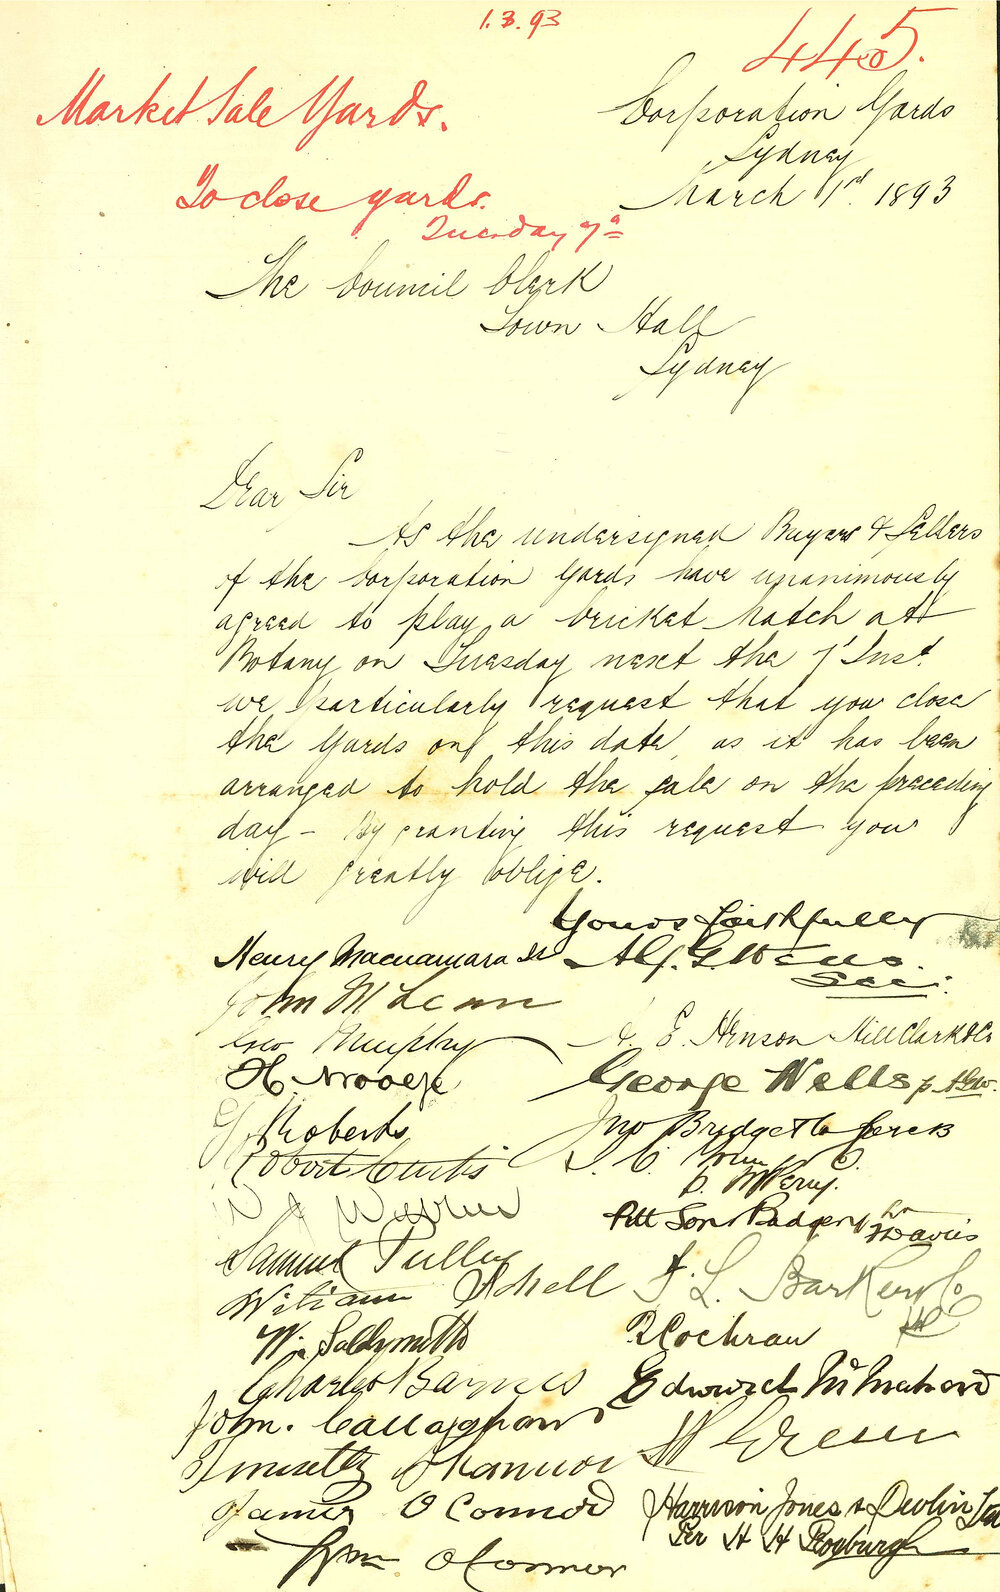 1.3.93
445.
Market Sale Yards.
Corporation Yards
Sydney
March 1st. 1893
To close yards.
Tuesday 7th
The Council Clerk
Town Hall
Sydney
Dear Sir
As the undersigned Buyers & Sellers
of the Corporation Yards have unanimously
agreed to play a Cricket Match at
Botany on Tuesday next the 7' Inst.
we particularly request that you close
the Yards on this date, as it has been
arranged to hold the sale on the preceeding
day - By granting this request you
will greatly oblige.
Yours faithfully
Henry Macnamara Jr
Alf. G. Wells.
Sec:
John McLean
Geo Murphy
A. E. Henson Hill Clark & Co
H.
George Wells p. AGW.
G Roberts
Jno Bridge & Co
Robert Curtis
W J Warren
Pitt Son & Badgery
Davis
Samuel Pulley
William Schell
F. L. Barker & Co
W. Goldsmith
P Cochran
Charles Barnes
Edward
John. Callaghan
W Green
James O'Connor
Harrison Jones & Devlin Ltd
Per H H Roxburgh
Wm O'Connor